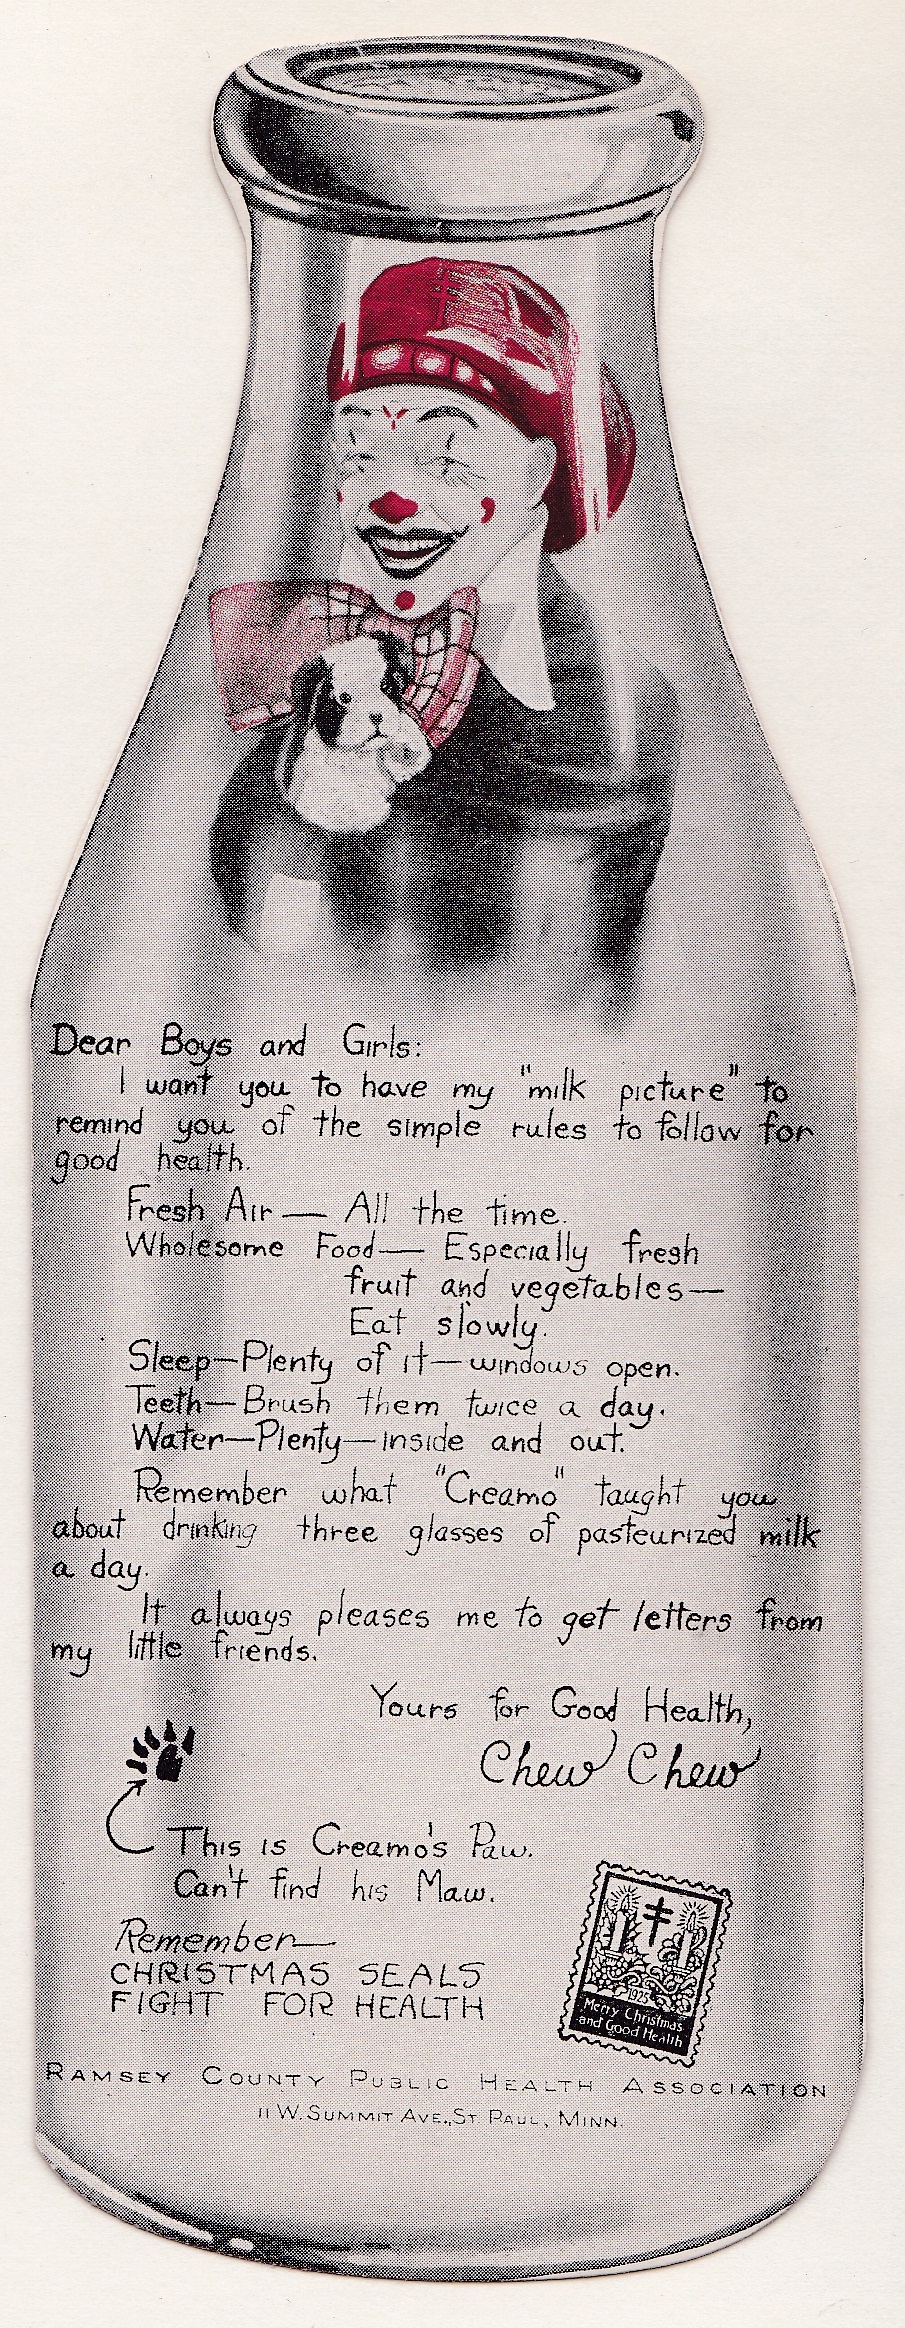 Dear Boys and Girls:
I want you to have my "milk picture" to
remind you of the simple rules to follow for
good health.
Fresh Air — All the time.
Wholesome Food — Especially fresh
fruit and vegetables —
Eat slowly.
Sleep — Plenty of it — windows open.
Teeth — Brush them twice a day.
Water — Plenty — inside and out.
Remember what "Creamo" taught you
about drinking three glasses of pasteurized milk
a day.
It always pleases me to get letters from
my little friends.
Yours for Good Health,
Chew Chew
This is Creamo's Paw.
Can't find his Maw.
Remember —
CHRISTMAS SEALS
FIGHT FOR HEALTH
1925
Merry Christmas
and Good Health
RAMSEY COUNTY PUBLIC HEALTH ASSOCIATION
11 W. SUMMIT AVE., ST. PAUL, MINN.